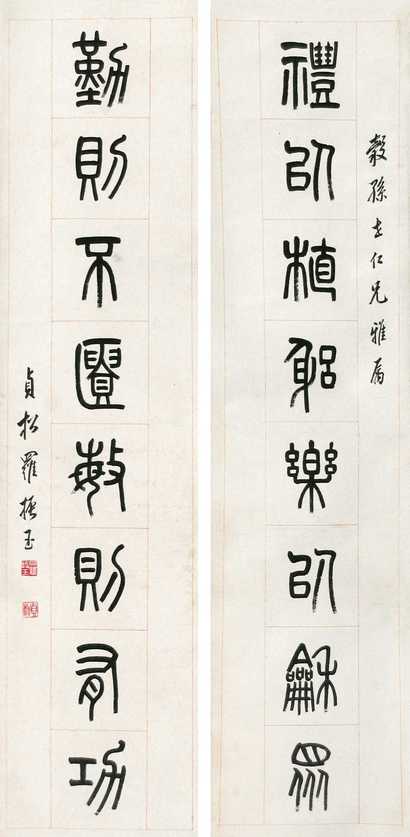 穀孫吉仁兄雅屬
禮以植躳樂以龢眾
勤則不匱敏則有功
貞松羅振玉